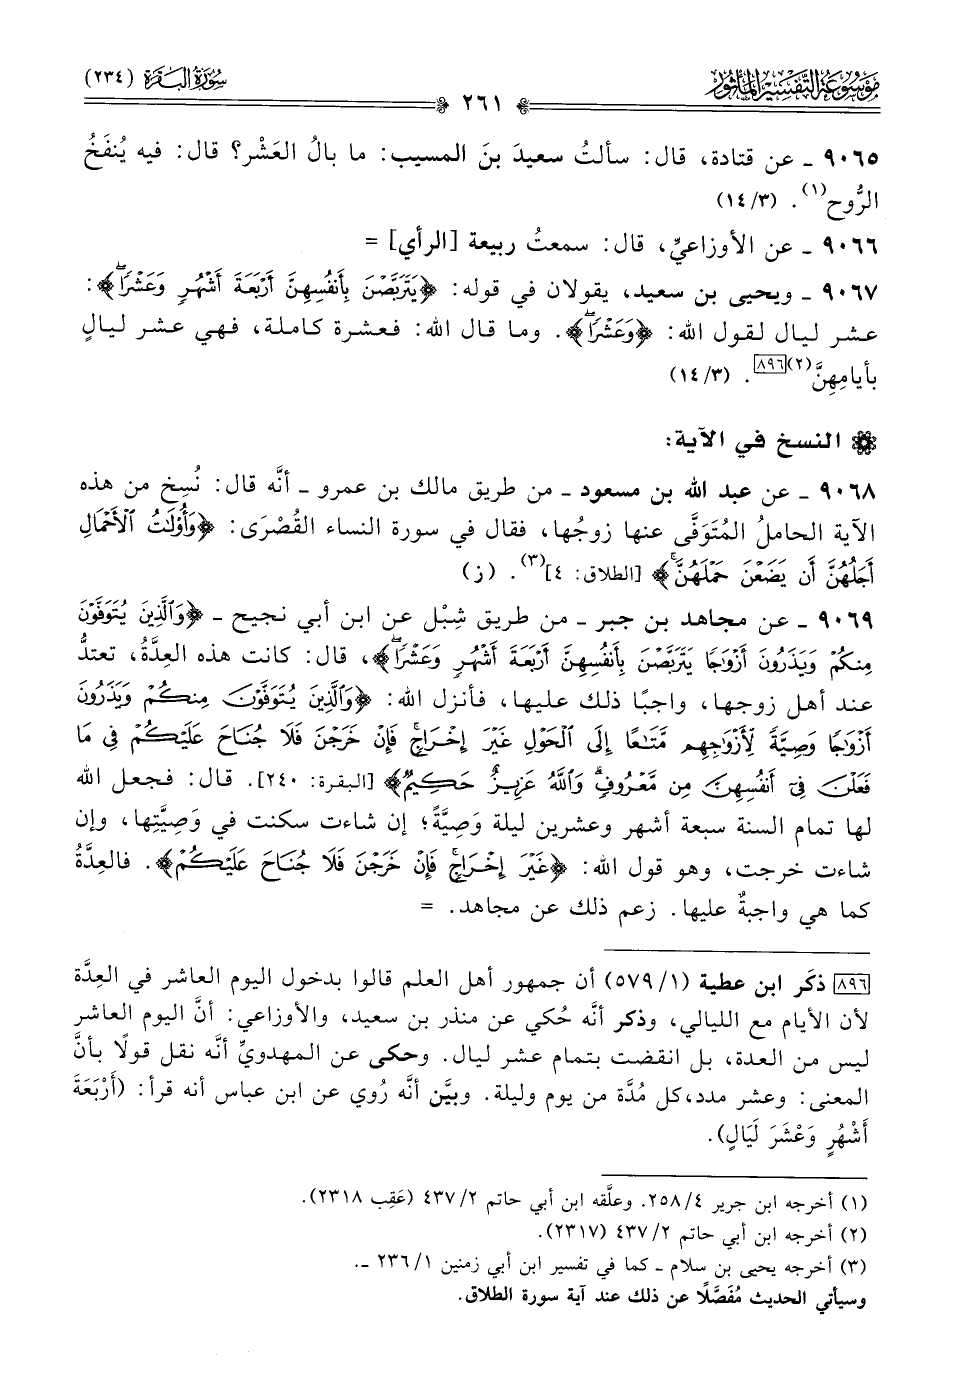 موسوعة التفسير المأثور
سورة البقرة (٢٣٤)
٢٦١
٩٠٦٥ ـ عن قتادة، قال: سألتُ سعيدَ بنَ المسيب: ما بالُ العَشْر؟ قال: فيه يُنفَخُ
الرُّوح(١). (١٤/٣)
٩٠٦٦ ـ عن الأوزاعيِّ، قال: سمعتُ ربيعة [الرأي] =
٩٠٦٧ ـ ويحيى بن سعيد، يقولان في قوله: ﴿يَتَرَبَّصْنَ بِأَنفُسِهِنَّ أَرْبَعَةَ أَشْهُرٍ وَعَشْرًا﴾:
عشر ليال لقول الله: ﴿وَعَشْرًا﴾. وما قال الله: فعشرة كاملة، فهي عشر ليالٍ
بأيامِهِنَّ(٢)[٨٩٦]. (١٤/٣)
❁ النسخ في الآية:
٩٠٦٨ ـ عن عبد الله بن مسعود ـ من طريق مالك بن عمرو ـ أنَّه قال: نُسِخ من هذه
الآية الحاملُ المُتَوَفَّى عنها زوجُها، فقال في سورة النساء القُصْرَى: ﴿وَأُوْلَٰتُ ٱلْأَحْمَالِ
أَجَلُهُنَّ أَن يَضَعْنَ حَمْلَهُنَّ﴾ [الطلاق: ٤](٣). (ز)
٩٠٦٩ ـ عن مجاهد بن جبر ـ من طريق شِبْل عن ابن أبي نجيح ـ ﴿وَٱلَّذِينَ يُتَوَفَّوْنَ
مِنكُمْ وَيَذَرُونَ أَزْوَٰجًا يَتَرَبَّصْنَ بِأَنفُسِهِنَّ أَرْبَعَةَ أَشْهُرٍ وَعَشْرًا﴾، قال: كانت هذه العِدَّةُ، تعتدُّ
عند أهل زوجها، واجبًا ذلك عليها، فأنزل الله: ﴿وَٱلَّذِينَ يُتَوَفَّوْنَ مِنكُمْ وَيَذَرُونَ
أَزْوَٰجًا وَصِيَّةً لِّأَزْوَٰجِهِم مَّتَٰعًا إِلَى ٱلْحَوْلِ غَيْرَ إِخْرَاجٍ فَإِنْ خَرَجْنَ فَلَا جُنَاحَ عَلَيْكُمْ فِى مَا
فَعَلْنَ فِىٓ أَنفُسِهِنَّ مِن مَّعْرُوفٍ وَٱللَّهُ عَزِيزٌ حَكِيمٌ﴾ [البقرة: ٢٤٠]. قال: فجعل الله
لها تمام السنة سبعة أشهر وعشرين ليلة وَصِيَّةً؛ إن شاءت سكنت في وَصِيَّتِها، وإن
شاءت خرجت، وهو قول الله: ﴿غَيْرَ إِخْرَاجٍ فَإِنْ خَرَجْنَ فَلَا جُنَاحَ عَلَيْكُمْ﴾. فالعِدَّةُ
كما هي واجبةٌ عليها. زعم ذلك عن مجاهد. =
[٨٩٦] ذكَر ابن عطية (٥٧٩/١) أن جمهور أهل العلم قالوا بدخول اليوم العاشر في العِدَّة
لأن الأيام مع الليالي، وذكر أنَّه حُكي عن منذر بن سعيد، والأوزاعي: أنَّ اليوم العاشر
ليس من العدة، بل انقضت بتمام عشر ليال. وحكى عن المهدويِّ أنَّه نقل قولًا بأنَّ
المعنى: وعشر مدد،كل مُدَّة من يوم وليلة. وبيَّن أنَّه رُوي عن ابن عباس أنه قرأ: (أَرْبَعَةَ
أَشْهُرٍ وَعَشْرَ لَيَالٍ).
(١) أخرجه ابن جرير ٢٥٨/٤. وعلَّقه ابن أبي حاتم ٤٣٧/٢ (عَقِب ٢٣١٨).
(٢) أخرجه ابن أبي حاتم ٤٣٧/٢ (٢٣١٧).
(٣) أخرجه يحيى بن سلام ـ كما في تفسير ابن أبي زمنين ٢٣٦/١ ـ.
وسيأتي الحديث مُفَصَّلًا عن ذلك عند آية سورة الطلاق.